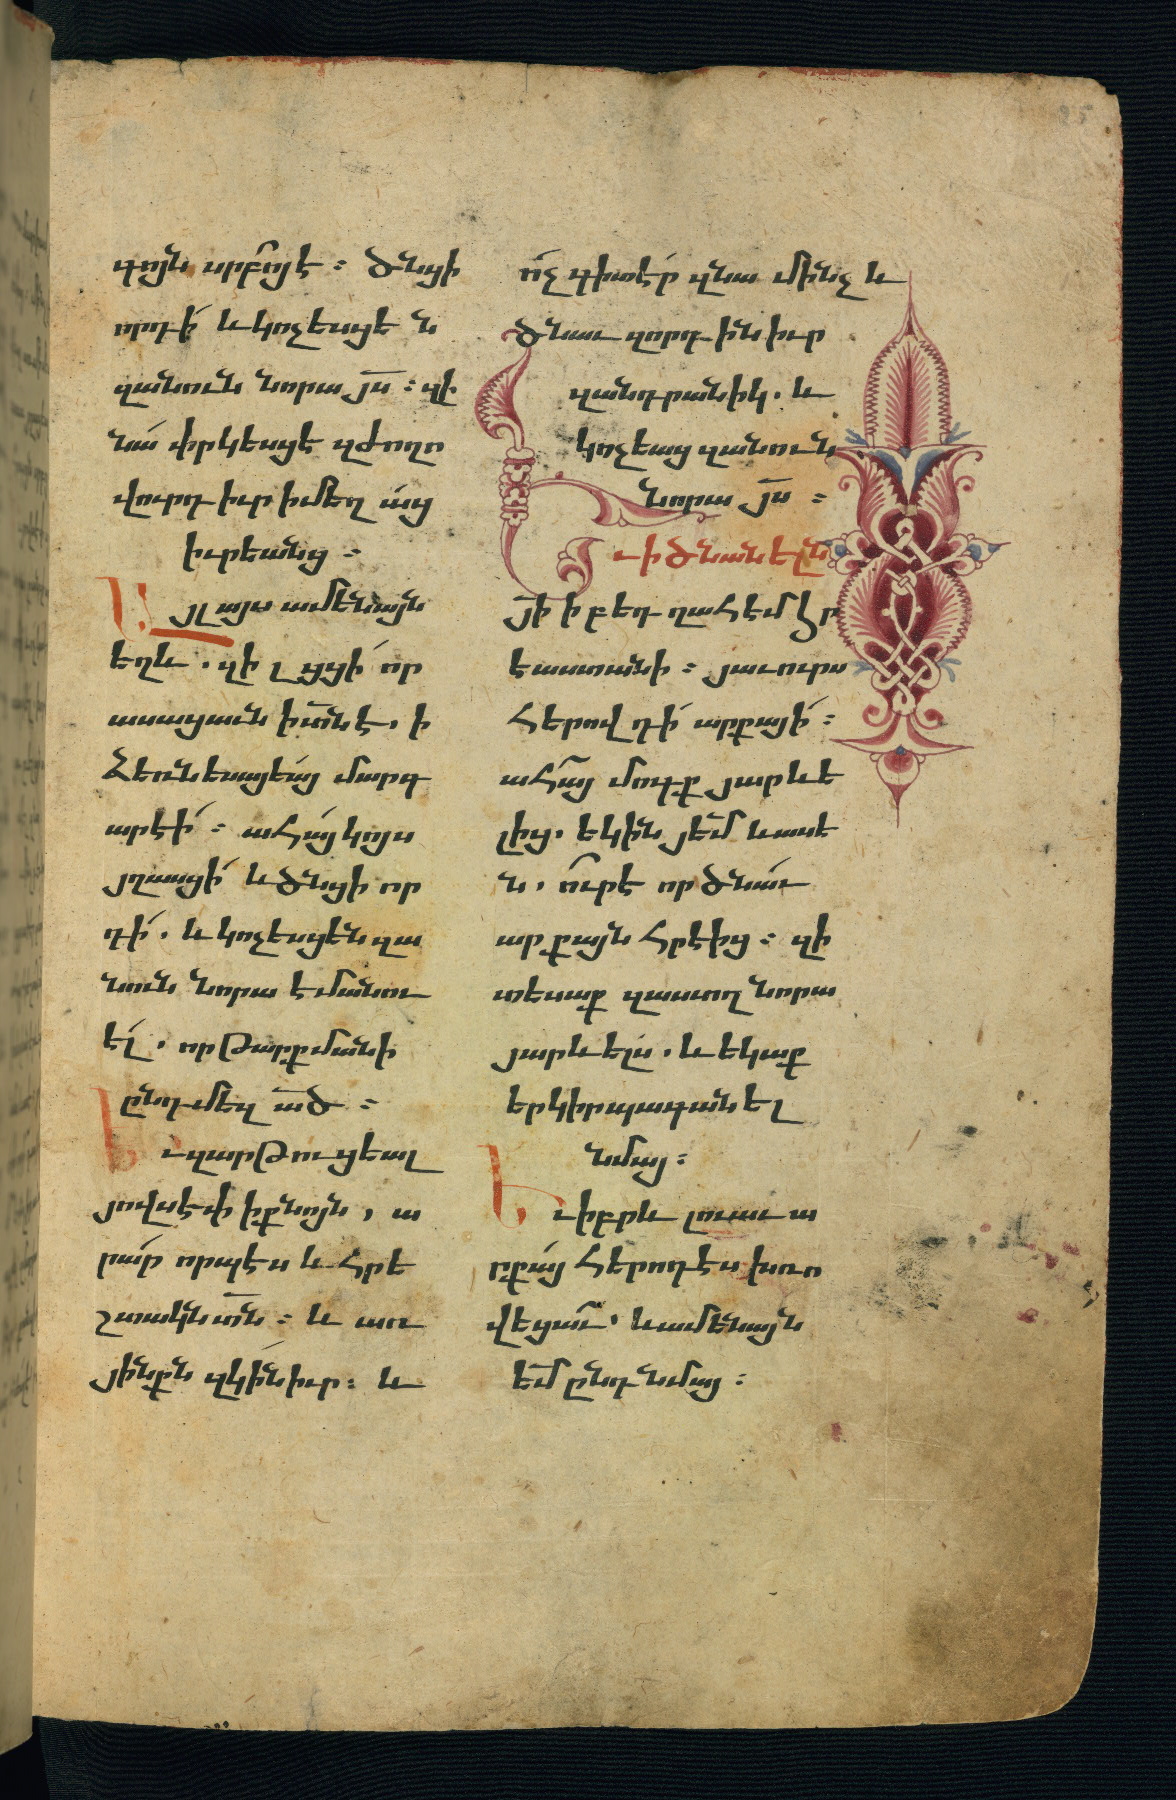 գոյն սրբոյ է։ Ծնցի
որդի և կոչեսցեն
զանուն նորա յս։ զի
նա փրկեսցէ զժողո
վուրդ իւր ի մեղաց
իւրեանց։
Այլ այս ամենայն
եղև. զի լցցի որ
ասացաւն ի տնէ. ի
ձեռն եսայեայ մարգ
արէի։ ահա կոյս
յղասցի և ծնցի որ
դի. և կոչեսցեն զա
նուն նորա էմանու
էլ. որ թարքմանի
ընդ մեզ ած։
Եւ զարթուցեալ
յովսէփ ի քնոյն, ա
րար որպէս և հրե
շտակն տն։ և առ
յինքն զկին իւր։ և
ոչ գիտէր զնա մինչև
ծնաւ զորդին իւր
զանդրանիկ. և
կոչեաց զանուն
նորա յս։
Եւ ի ծնանելն
յի ի բեդղահէմ հր
եաստանի։ յաւուրս
հերովդի արքայի։
ահա մոգք յարևե
լից. եկին յեմ և ասե
ն. ուր է որ ծնաւ
արքայն հրէից։ զի
տեսաք զաստղ նորա
յարևելս. և եկաք
երկիրպագանել
նմա։
Եւ իբրև լուաւ ա
րքայ հերովդէս խռո
վեցաւ. և ամենայն
եմ ընդ նմա։